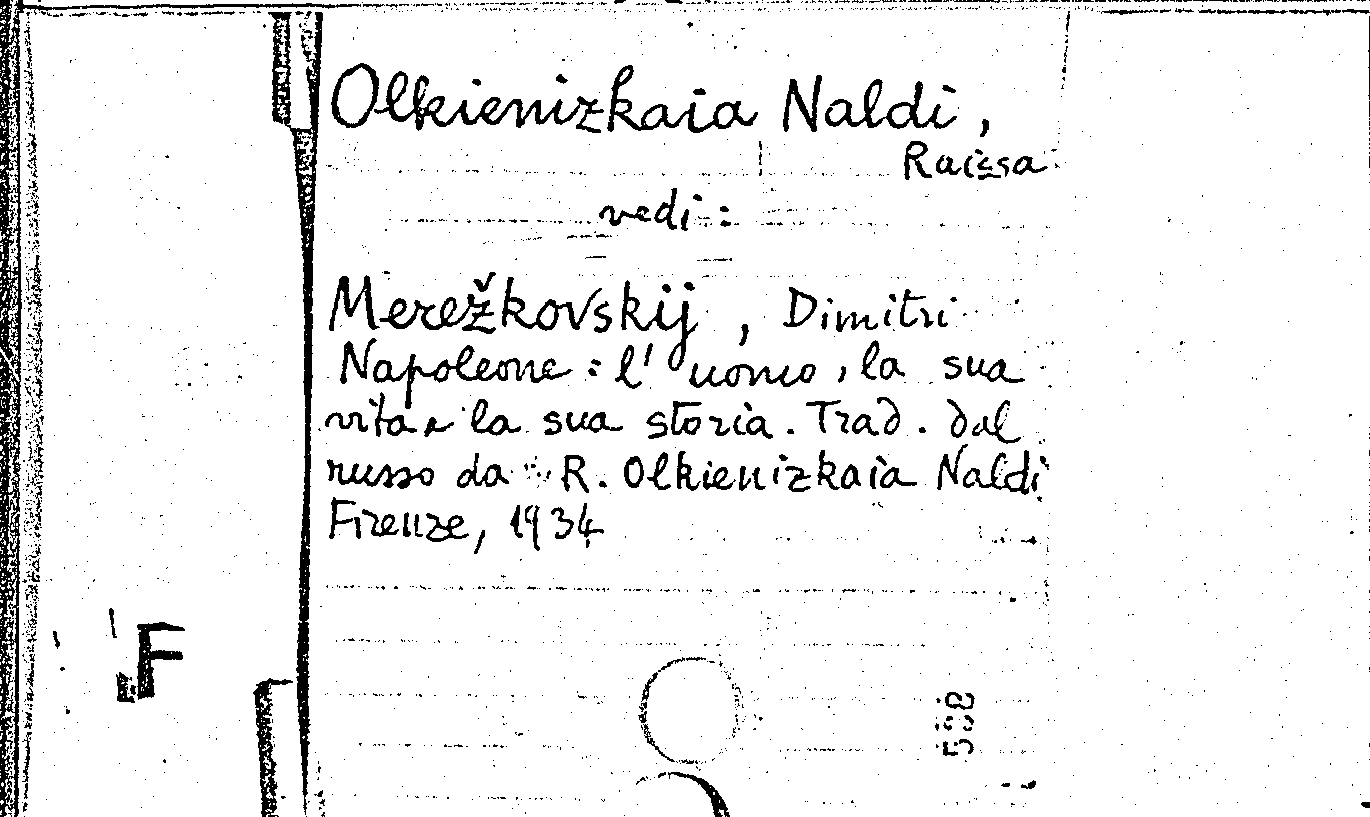 Olkienizkaia Naldi,
Raissa
vedi:
Merežkovskij, Dimitri
Napoleone: l'uomo, la sua
vita e la sua storia. Trad. dal
russo da R. Olkienizkaia Naldi
Firenze, 1934
F